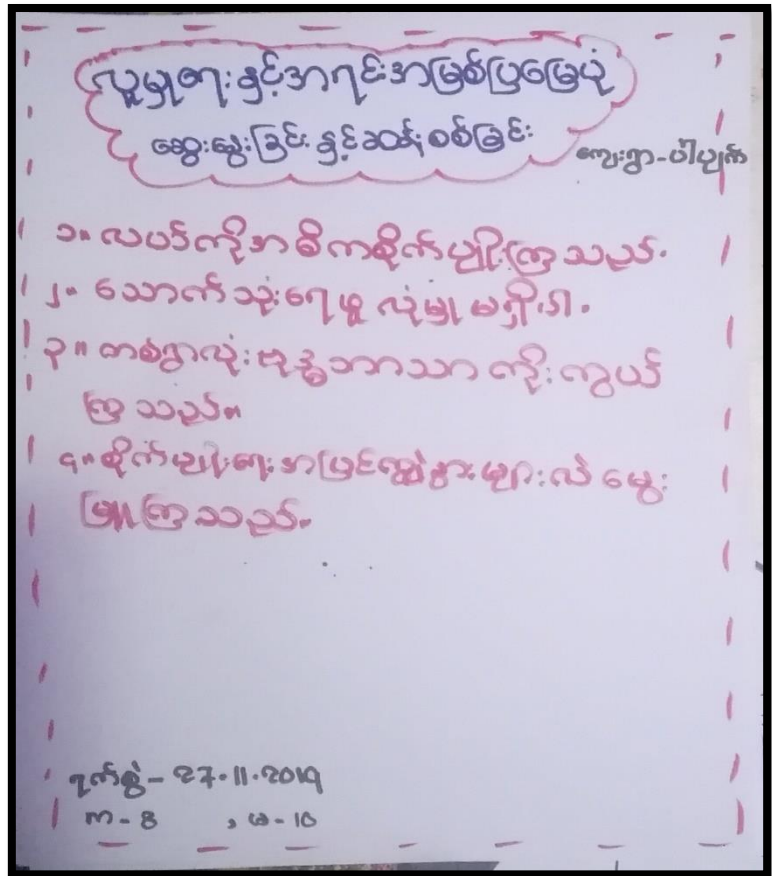 လူမှုရေးနှင့်အရင်းအမြစ်ပြမြေပုံ
ဆွေးနွေးခြင်းနှင့်ဆန်းစစ်ခြင်း
ကျေးရွာ-ပါပျက်
၁။ လယ်ကိုအဓိကစိုက်ပျိုးကြသည်။
၂။ သောက်သုံးရေဖူလုံမှု မရှိပါ။
၃။ တစ်ရွာလုံးဗုဒ္ဓဘာသာကိုးကွယ်
ကြသည်။
၄။ စိုက်ပျိုးရေးအပြင်ကျွဲနွားများလဲ မွေး
မြူကြသည်။
ရက်စွဲ - 27.11.2019
ကာ - 8 , မ - 10